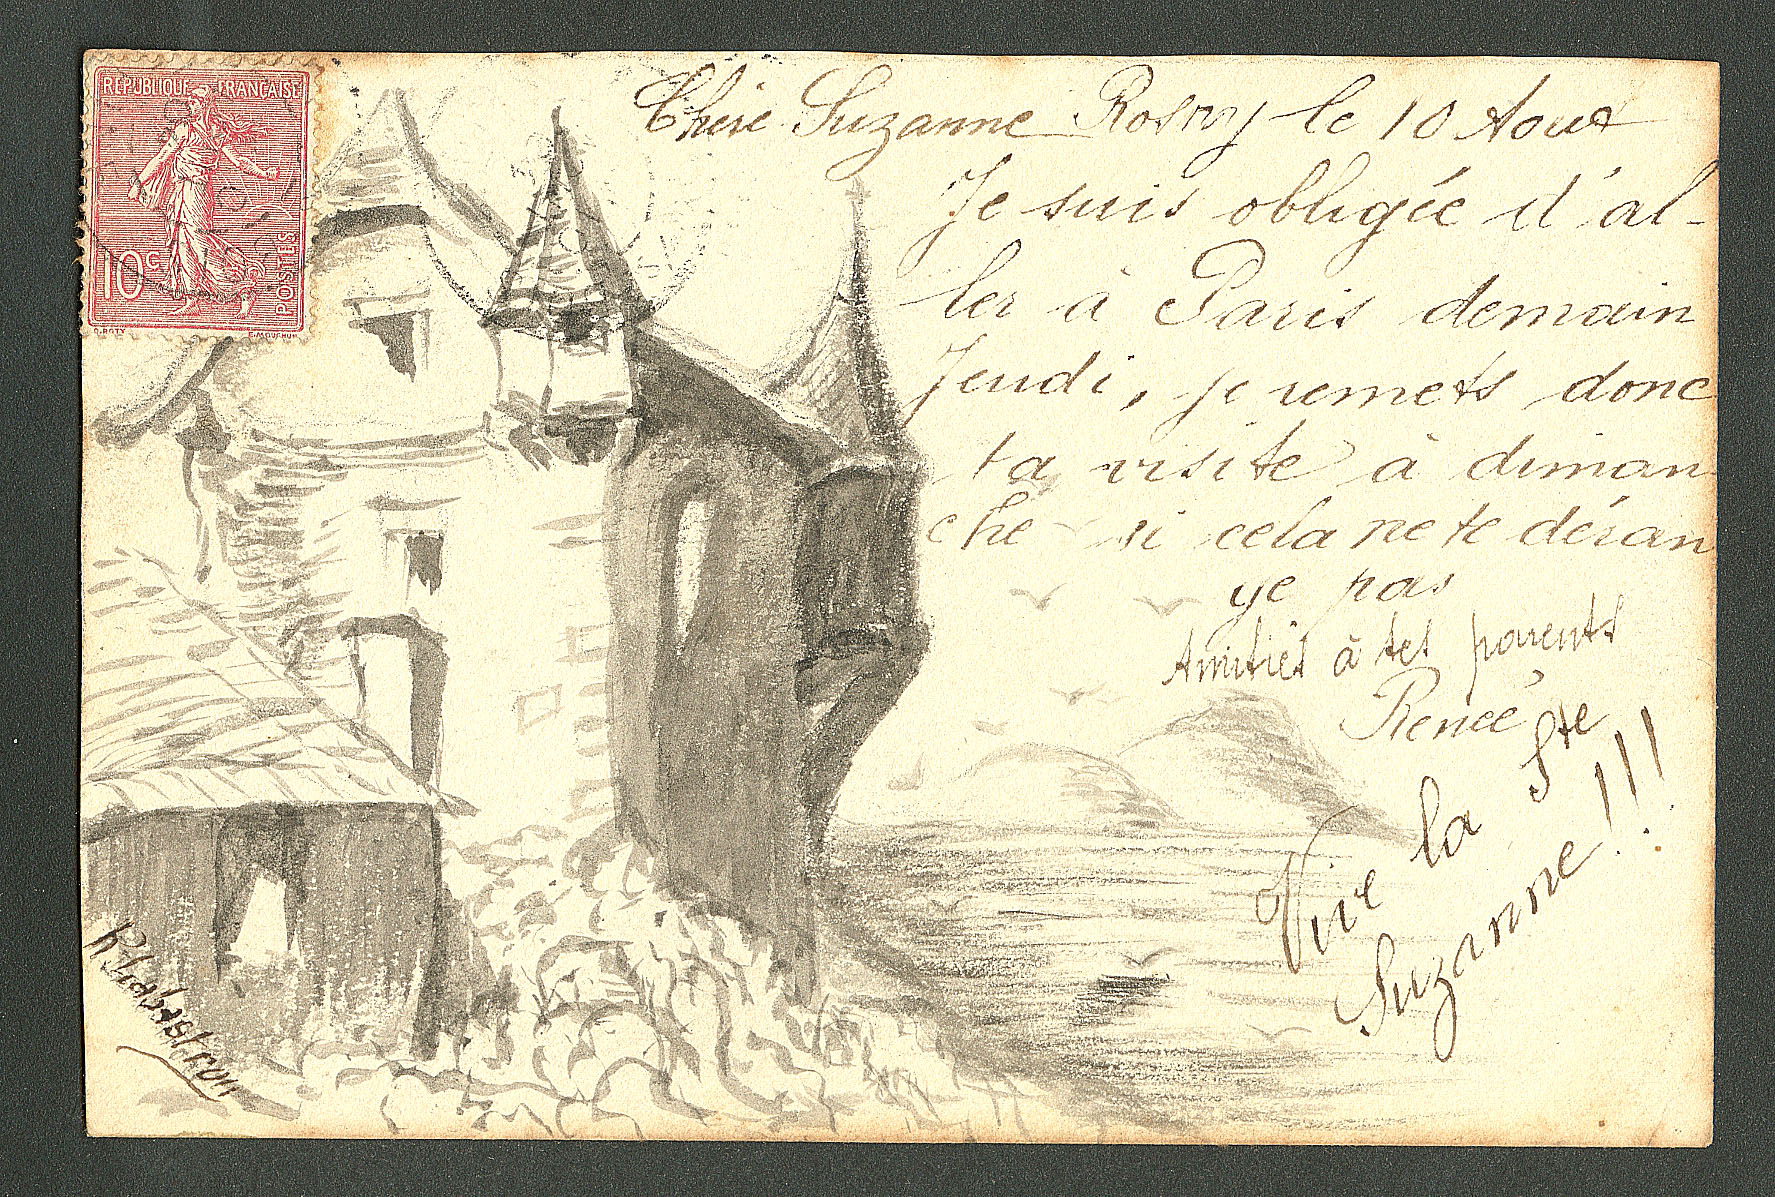 RÉPUBLIQUE FRANÇAISE
10c
POSTES
O. ROTY
E. MOUCHON
Chère Suzanne Rosny le 10 Aout
Je suis obligée d'al-
ler à Paris demain
Jeudi, je remets donc
ta visite à diman
che si cela ne te déran
ge pas
Amitiés à tes parents
Renée
Vive la Ste
Suzanne!!!